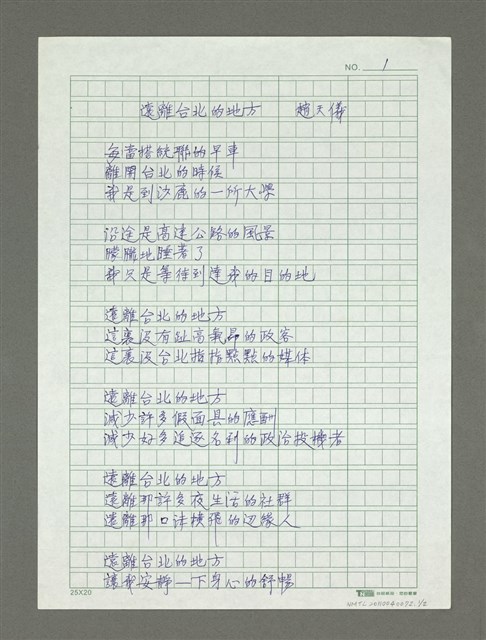 NO. 1
遠離台北的地方 趙天儀
每當搭統聯的早車
離開台北的時候
我是到沙鹿的一所大學
沿途是高速公路的風景
朦朧地睡著了
我只是等待到達我的目的地
遠離台北的地方
這裏沒有趾高氣昂的政客
這裏沒台北指指點點的媒体
遠離台北的地方
減少許多假面具的應酬
減少好多追逐名利的政治投機者
遠離台北的地方
遠離那許多夜生活的社群
遠離那口沫橫飛的边緣人
遠離台北的地方
讓我安靜一下身心的舒暢
25X20